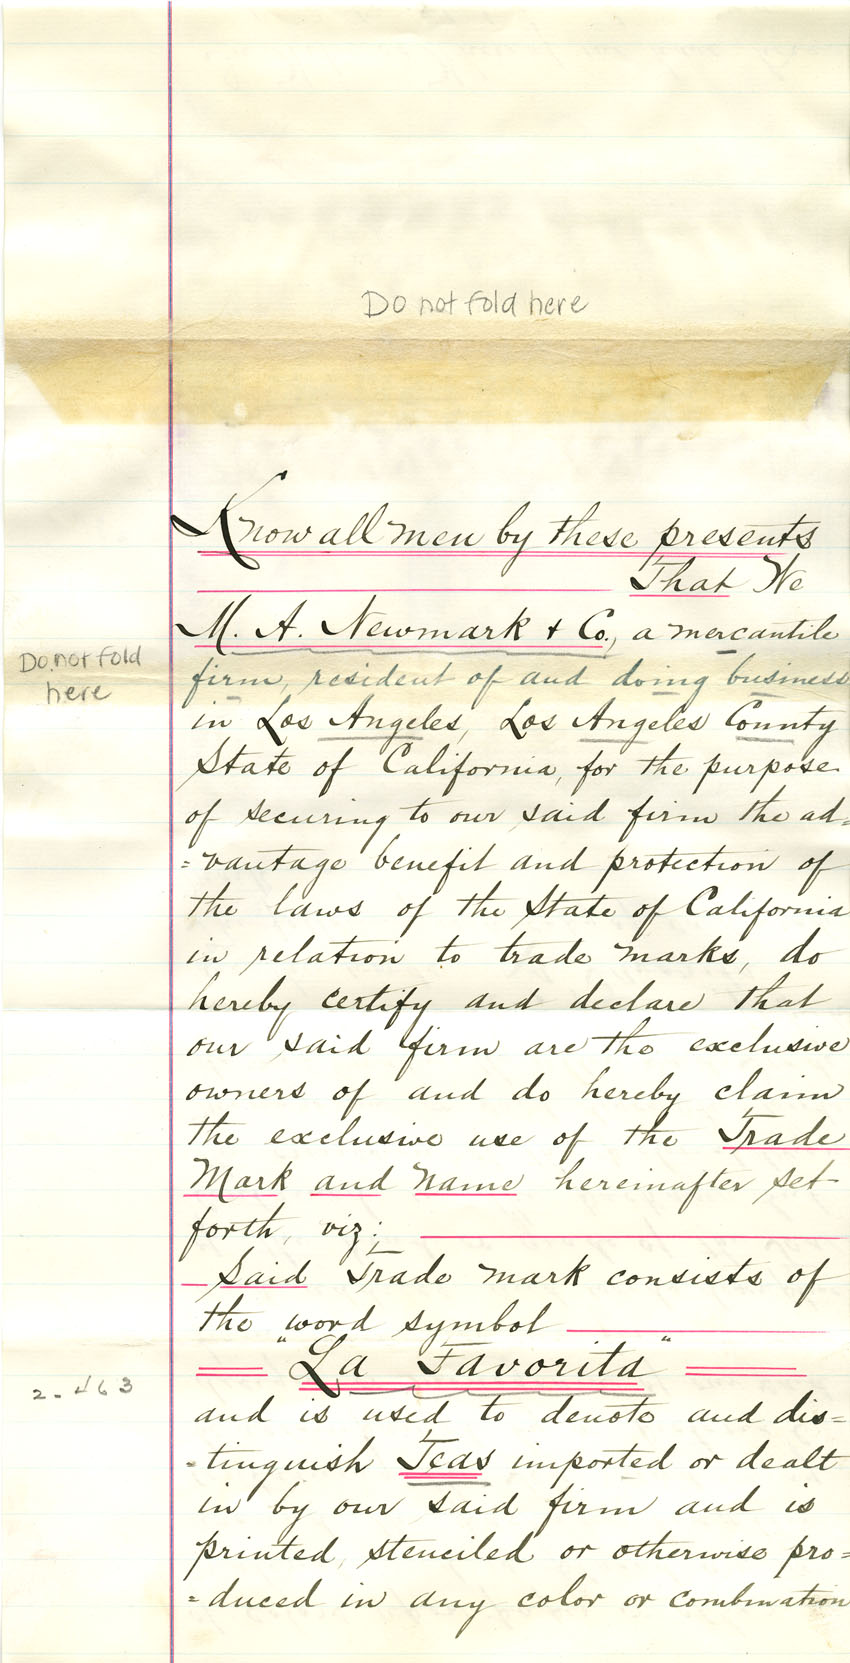 Do not fold here
Know all men by these presents
That We
M. A. Newmark & Co., a mercantile
Do not fold
here
firm, resident of and doing business
in Los Angeles, Los Angeles County
State of California, for the purpose
of securing to our said firm the ad=
=vantage benefit and protection of
the laws of the State of California
in relation to trade marks, do
hereby certify and declare that
our said firm are the exclusive
owners of and do hereby claim
the exclusive use of the Trade
Mark and name hereinafter set
forth, viz:
Said Trade mark consists of
the word symbol
"La Favorita"
2-463
and is used to denote and dis=
-tinguish Teas imported or dealt
in by our said firm and is
printed, stenciled or otherwise pro=
=duced in any color or combination